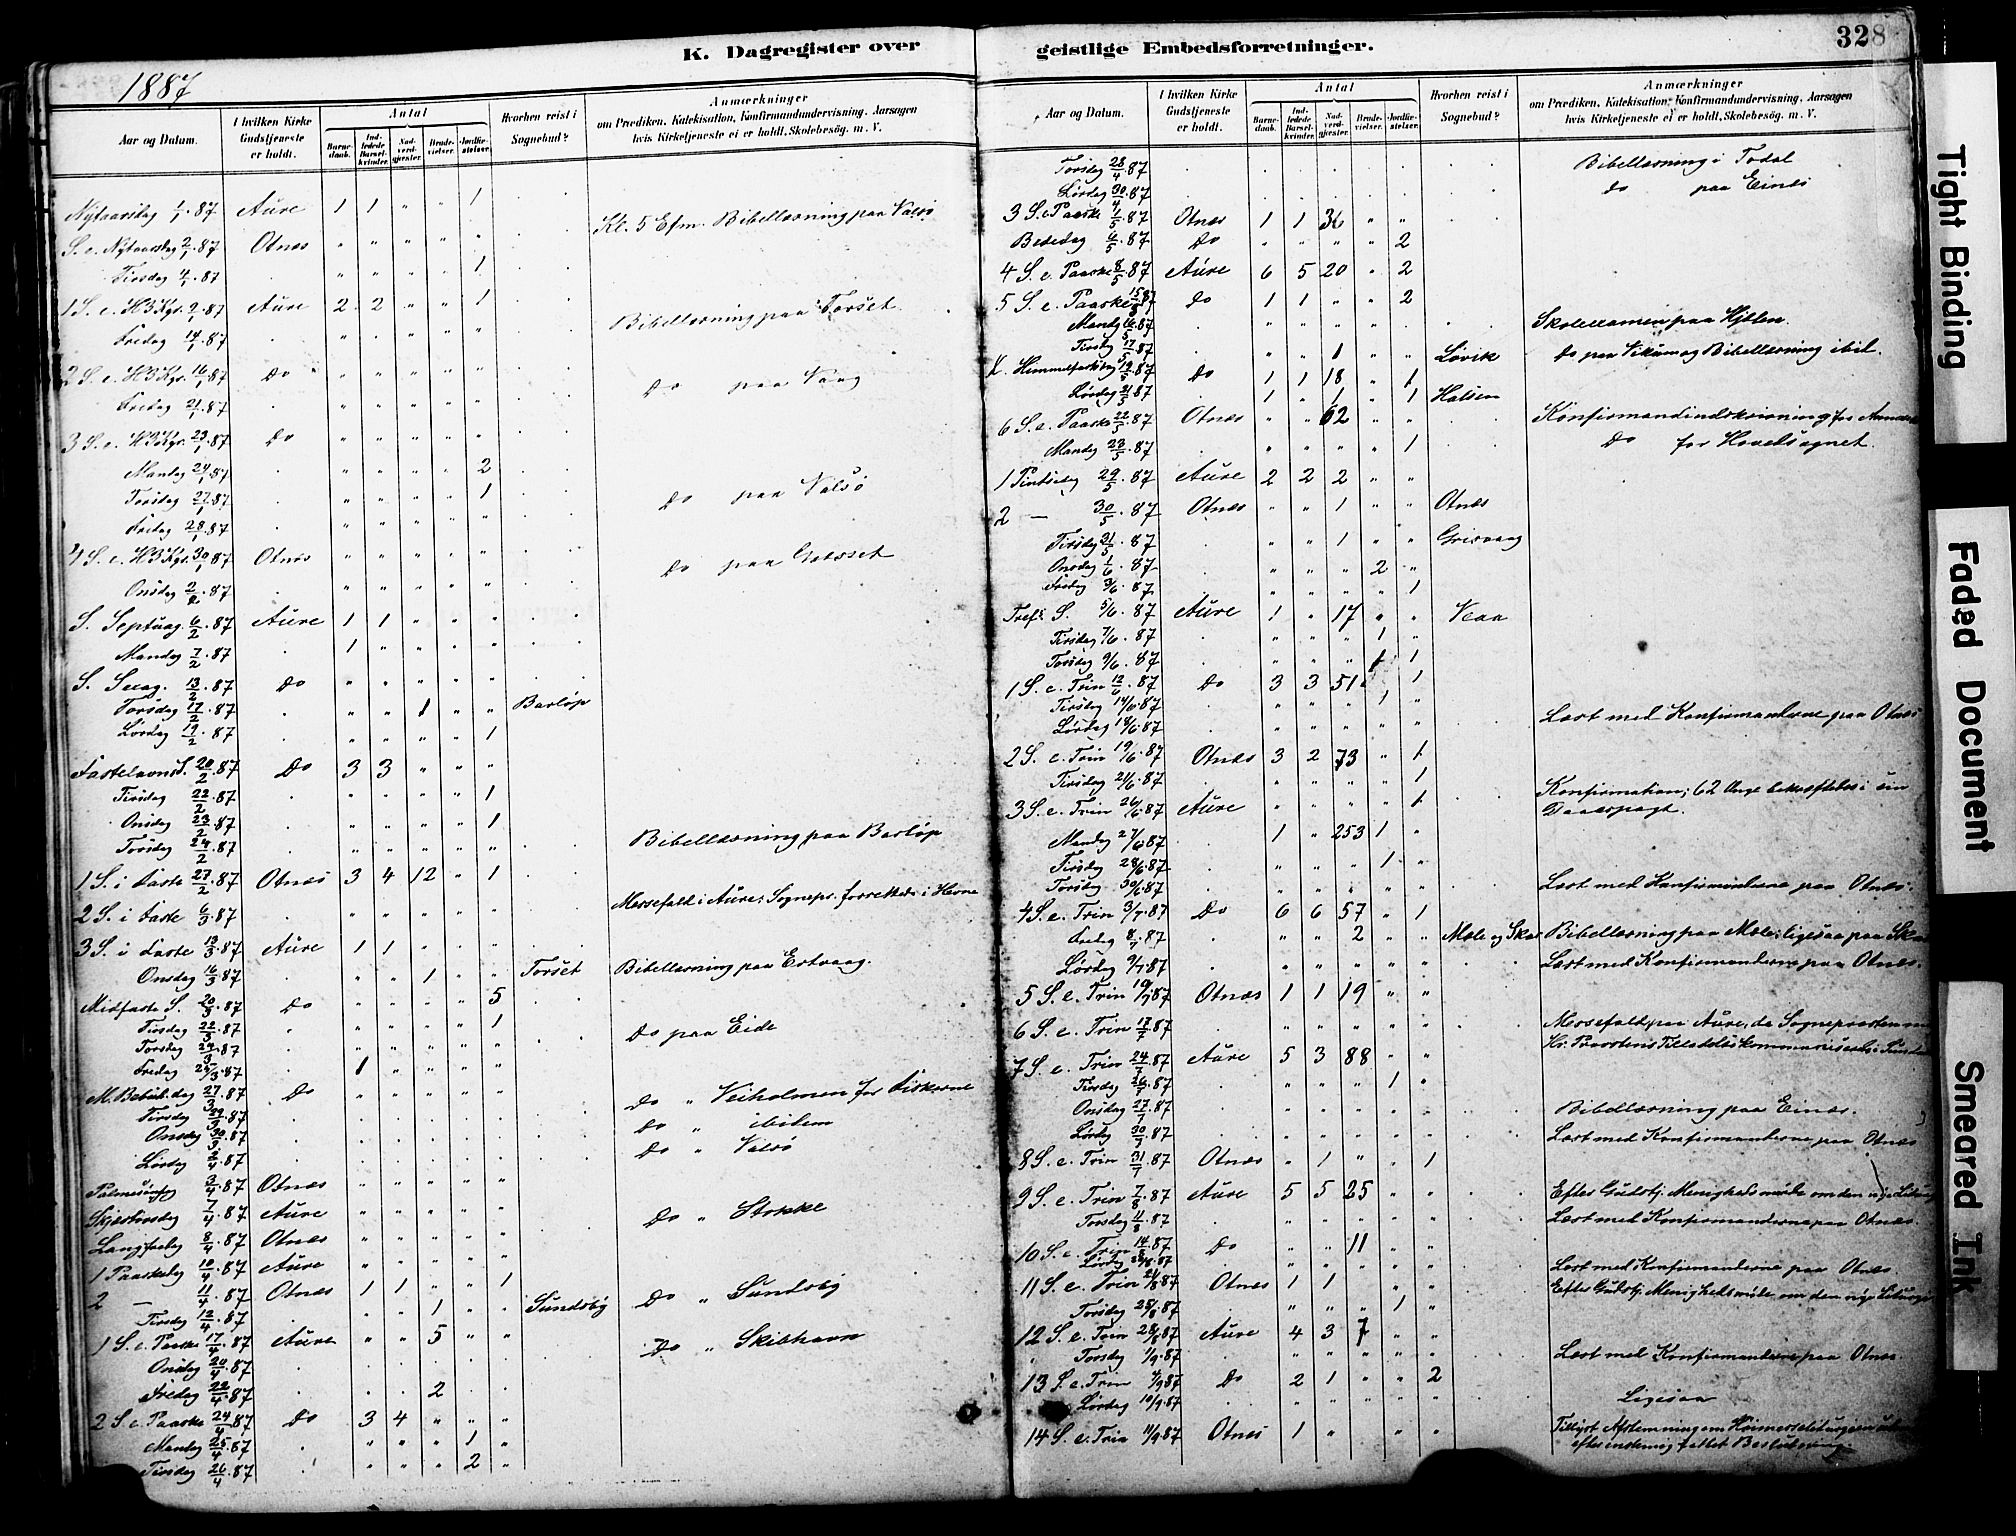 K. Dagregister over geistlige Embedsforretninger.
328
1887
Aar og Datum.
I hvilken Kirke Gudstjeneste er holdt.
Antal
Barnedaab.
Indledede Barselkvinder.
Nadverdgjester.
Brudevielser.
Jordfæstelser.
Hvorhen reist i Sognebud?
Anmærkninger
om Prædiken, Katekisation, Konfirmandundervisning, Aarsagen hvis Kirketjeneste ei er holdt, Skolebesøg. m. V.
Nytaarsdag 1/1.87 Aure 1 1 " " 1
Kl. 5 Efm. Bibellæsning paa Valsø
S. e. Nytaarsdag 2/1.87 Otnes " " " " "
Tirsdag 4/1.87 " " " " 1
1 S. e. H3Kgr. 9/1.87 Aure 2 2 " " 1
Fredag 14/1.87 " " " " " Bibellæsning paa Torset
2 S. e. H3Kgr. 16/1.87 Do " " " " "
Fredag 21/1.87 " " " " " Do paa Vaag
3 S. e. H3Kgr. 23/1.87 Do " " " " "
Mandag 24/1.87 " " " " 2
Torsdag 27/1.87 " " " " 1
Fredag 28/1.87 " " " " " Do paa Valsø
4 S. e. H3Kgr. 30/1.87 Otnes " " " " "
Onsdag 2/2.87 " " " " " Do paa
S. Septuag. 6/2.87 Aure 1 1 " " "
Mandag 7/2.87 1 " " " "
S. Sexag. 13/2.87 Do " " " " "
Torsdag 17/2.87 " " 1 " " Barløp
Lørdag 19/2.87 " " " " 1
Fastelavns S. 20/2.87 Do 3 3 " " "
Tirsdag 22/2.87 " " " " 1
Onsdag 23/2.87 " " " " 1
Torsdag 24/2.87 " " " " " Bibellæsning paa Barløp
1 S. i Faste 27/2.87 Otnes 3 4 12 " 1
2 S. i Faste 6/3.87 " " " " " Messefald i Aure; Sognepr. forrettede i Hevne
3 S. i Faste 13/3.87 Aure 1 1 " " "
Onsdag 16/3.87 " " 1 " " Torset Bibellæsning paa Ertvaag.
Midfaste S. 20/3.87 Do " " " " 5
Tirsdag 22/3.87 " " " " 1 Do paa Eide
Torsdag 24/3.87
Fredag 25/3.87 1 " " " "
M. Bebud. dag 27/3.87 Do " " " " "
Tirsdag 29/3.87 Do " Veiholmen for Fiskerne
Onsdag 30/3.87 Do " ibidem
Lørdag 2/4.87 Do " Valsø
Palmesøndag 3/4.87 Otnes " " " " "
Skjærtorsdag 7/4.87 Aure " " " " " Do " Stokke
Langfredag 8/4.87 Otnes " " " " "
1 Paaskedag 10/4.87 Aure " " " " "
2 — 11/4.87 Otnes 1 1 " " 1
Tirsdag 12/4.87 " " 1 " " Sundsbø Do " Sundsbø
1 S. e. Paaske 17/4.87 Aure " " 5 " "
Onsdag 20/4.87 Do " Skibhavn
Fredag 22/4.87 2
2 S. e. Paaske 24/4.87 Do 3 4 " " "
Mandag 25/4.87 " " " 1 "
Tirsdag 26/4.87 " " " 2 "
Aar og Datum.
I hvilken Kirke Gudstjeneste er holdt.
Antal
Barnedaab.
Indledede Barselkvinder.
Nadverdgjester.
Brudevielser.
Jordfæstelser.
Hvorhen reist i Sognebud?
Anmærkninger
om Prædiken, Katekisation, Konfirmandundervisning, Aarsagen hvis Kirketjeneste ei er holdt, Skolebesøg. m. V.
Torsdag 28/4.87 Bibellæsning i Todal
Lørdag 30/4.87 Do paa Eines
3 S. e. Paaske 1/5.87 Otnes 1 1 36 " "
Bededag 6/5.87 Do " " " " 2
4 S. e. Paaske 8/5.87 Aure 6 5 20 " 2
5 S. e. Paaske 15/5.87 Do 1 1 " " 2
Mandg 16/5.87 " " " " Skoleexamen paa Hjelen.
Tirsdag 17/5.87 " " 1 " " Løvik Do paa Vikum og Bibellæsning ibid.
K. Himmelfartsdag 19/5.87 Do 1 1 18 " 1
Lørdag 21/5.87 1 " 1 " 1 Halsen
6 S. e. Paaske 22/5.87 Otnes " " 62 " " Konfirmandindskrivning for
Mandag 23/5.87 " " " " 1 Do for Hovedsognet.
1 Pintsedag 29/5.87 Aure 2 2 2 " "
2 — 30/5.87 Otnes " " 1 " " Otnes
Tirsdag 31/5.87 " " 1 " " Grisvaag
Onsdag 1/6.87 " " " 2 "
Fredag 3/6.87 " " " " 1
Tref. S. 5/6.87 Aure 1 " 17 " " Veaa
Tirsdag 7/6.87 " " " 1 "
Torsdag 9/6.87 " " " 1 1
1 S. e. Trin 12/6.87 Do 3 3 51 " 1
Tirsdag 14/6.87 " " " 1 "
Lørdag 18/6.87 " " " " " Læst med Konfirmanderne paa Otnes
2 S. e. Trin 19/6.87 Otnes 3 2 73 " 1
Tirsdag 21/6.87 " " " " 1
3 S. e. Trin 26/6.87 Aure " " " " 1 Konfirmation; 62 Ungd. bekræftedes i sin Daabspagt.
Mandag 27/6.87 1 " 253 1 "
Tirsdag 28/6.87 " " " 1 "
Torsdag 30/6.87 " " " " " Læst med Konfirmanderne paa Otnes.
4 S. e. Trin 3/7.87 Do 6 6 57 " 1
Fredag 8/7.87 " " 2 " " Mæle og Skar Bibellæsning paa Mæle; ligesaa paa Skar
Lørdag 9/7.87 " " " " " Læst med Konfirmanderne paa Otnes.
5 S. e. Trin 10/7.87 Otnes 1 1 19 " "
6 S. e. Trin 17/7.87 " " " " " Messefald paa Aure, da Sognepræsten
7 S. e. Trin 24/7.87 Aure 5 3 88 " "
Tirsdag 26/7.87 " " " 1 "
Onsdag 27/7.87 " " " " " Bibellæsning paa Eines.
Lørdag 30/7.87 " " " " " Læst med Konfirmanderne paa Otnes
8 S. e. Trin 31/7.87 Otnes " 1 " " 1
9 S. e. Trin 7/8.87 Aure 5 5 25 " " Efter Gudstj. Menighedsmøde om den nye Liturgi
Torsdag 11/8.87 " " " " " Læst med Konfirmanderne paa Otnes.
10 S. e. Trin 14/8.87 Do " " 11 " "
Lørdag 20/8.87 " " " " " Læst med Konfirmanderne paa Otnes
11 S. e. Trin 21/8.87 Otnes 1 1 " " " Efter Gudstj. Menighedsmøde om den nye Liturgi
Torsdag 25/8.87 " " " 1 "
12 S. e. Trin 28/8.87 Aure 4 3 7 " "
Torsdag 1/9.87 " " " " " Læst med Konfirmanderne paa Otnes.
13 S. e. Trin 4/9.87 Do 2 1 " " 2
Lørdag 10/9.87 " " " " " Ligesaa
14 S. e. Trin 11/9.87 Otnes 1 " " " Tillyst Afstemning om Høimesseliturgien
efter endemig fattet Beslutning.
Tight Binding
Faded Document
Smeared Ink